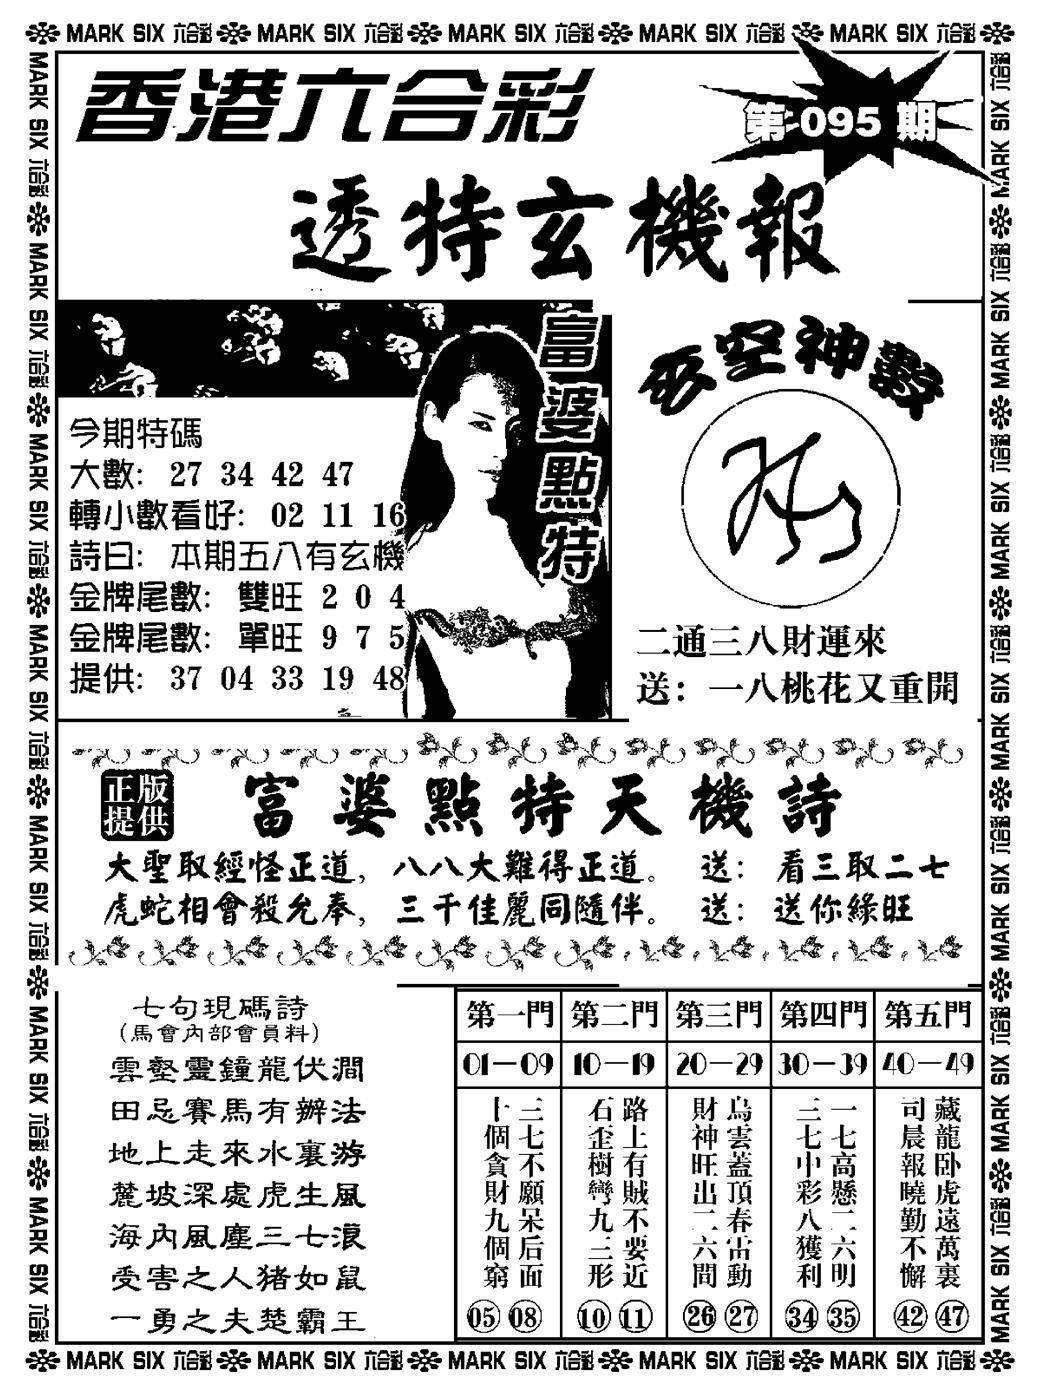 MARK SIX 六合彩 MARK SIX 六合彩 MARK SIX 六合彩 MARK SIX 六合彩 MARK SIX 六合彩
香港六合彩
第 095 期
透特玄機報
富婆點特
今期特碼
大數: 27 34 42 47
轉小數看好: 02 11 16
詩曰: 本期五八有玄機
金牌尾數: 雙旺 2 0 4
金牌尾數: 單旺 9 7 5
提供: 37 04 33 19 48
玄空神數
二通三八財運來
送: 一八桃花又重開
正版提供
富婆點特天機詩
大聖取經怪正道, 八八大難得正道。 送: 看三取二七
虎蛇相會殺允奉, 三千佳麗同隨伴。 送: 送你綠旺
七句現碼詩
(馬會內部會員料)
雲壑靈鐘龍伏澗
田忌賽馬有辦法
地上走來水裏游
麓坡深處虎生風
海內風塵三七浪
受害之人猪如鼠
一勇之夫楚霸王
第一門 第二門 第三門 第四門 第五門
01—09 10—19 20—29 30—39 40—49
三七不願呆后面
十個貪財九個窮
路上有賊不要近
石歪樹彎九三形
烏雲蓋頂春雷動
財神旺出二六問
一七高懸二六明
三七中彩八獲利
藏龍卧虎遠萬裏
司晨報曉勤不懈
05 08 10 11 26 27 34 35 42 47
MARK SIX 六合彩 MARK SIX 六合彩 MARK SIX 六合彩 MARK SIX 六合彩 MARK SIX 六合彩